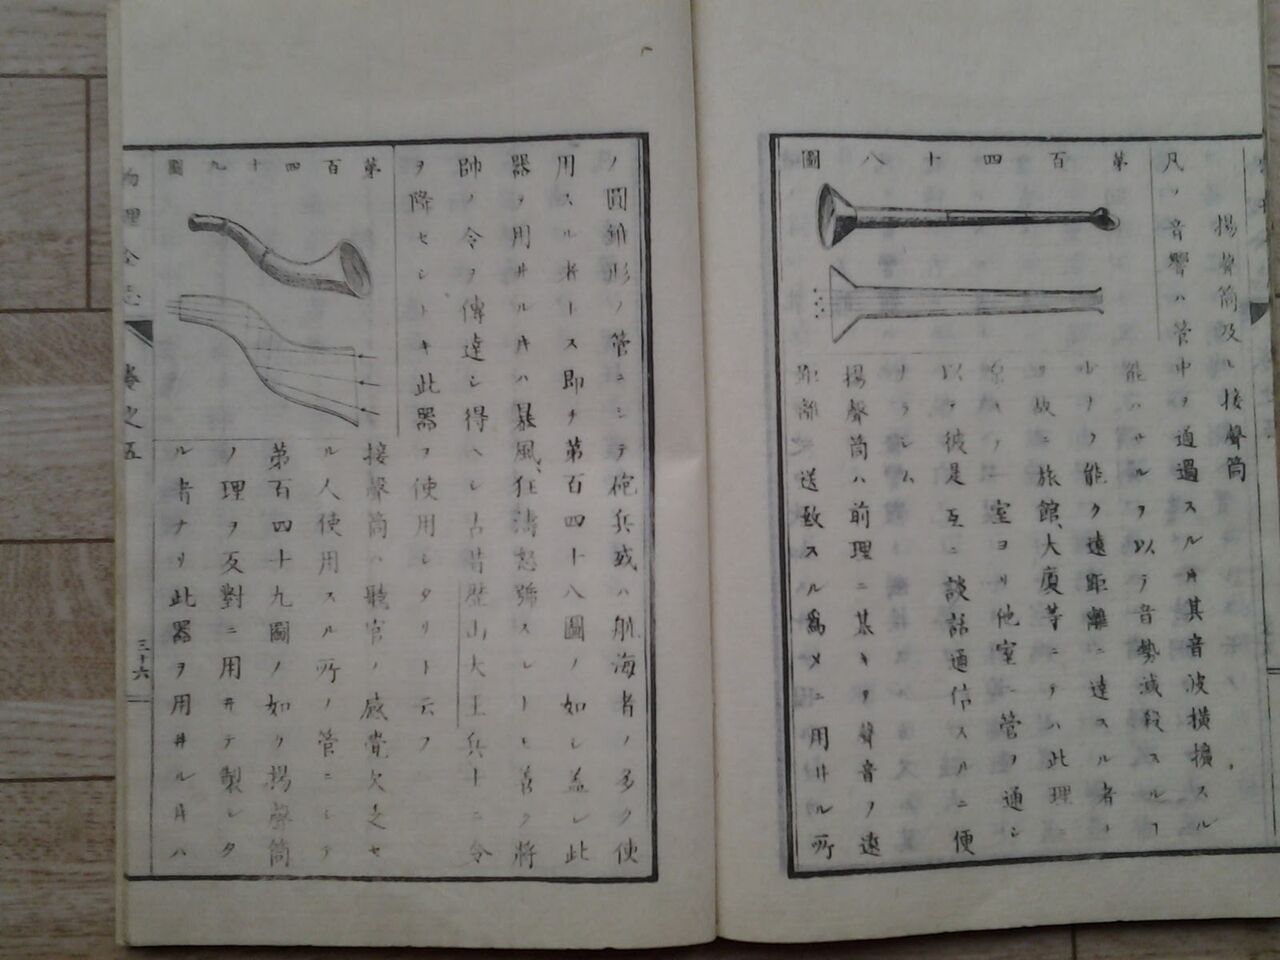 揚聲筒及ヒ接聲筒
凡ソ音響ハ管中ヲ通過スル片其音波橫擴スル
能ハサルヲ以テ音勢減殺スルヿ
少ナク能ク遠距離ニ達スル者ナ
リ故ニ旅館、大廈等ニテハ此理ニ
室ヨリ他室ニ管ヲ通シ
以テ彼是互ニ談話通信スルニ便
ナラシム
揚聲筒ハ前理ニ基キタ聲音ヲ遠
距離ニ送致スル爲メニ用井ル所
第百四十八圖
ノ圓錐形ノ管ニシテ砲兵或ハ航海者ノ多ク使
用スル者トス即チ第百四十八圖ノ如シ蓋シ此
器ヲ用井ル片ハ暴風、狂濤怒號スレトモ善ク將
帥ノ令ヲ傳達シ得ヘシ古昔歷山大王兵卜ニ令
ヲ降セシトキ此器ヲ使用シタリト云フ
第百四十九圖
接聲筒ハ聽官ノ感覺欠乏セ
ル人使用スル所ノ管ニシテ
第百四十九圖ノ如ク揚聲筒
ノ理ヲ反對ニ用井テ製シタ
ル者ナリ此器ヲ用井ル片ハ
物理全志
卷之五
三十六